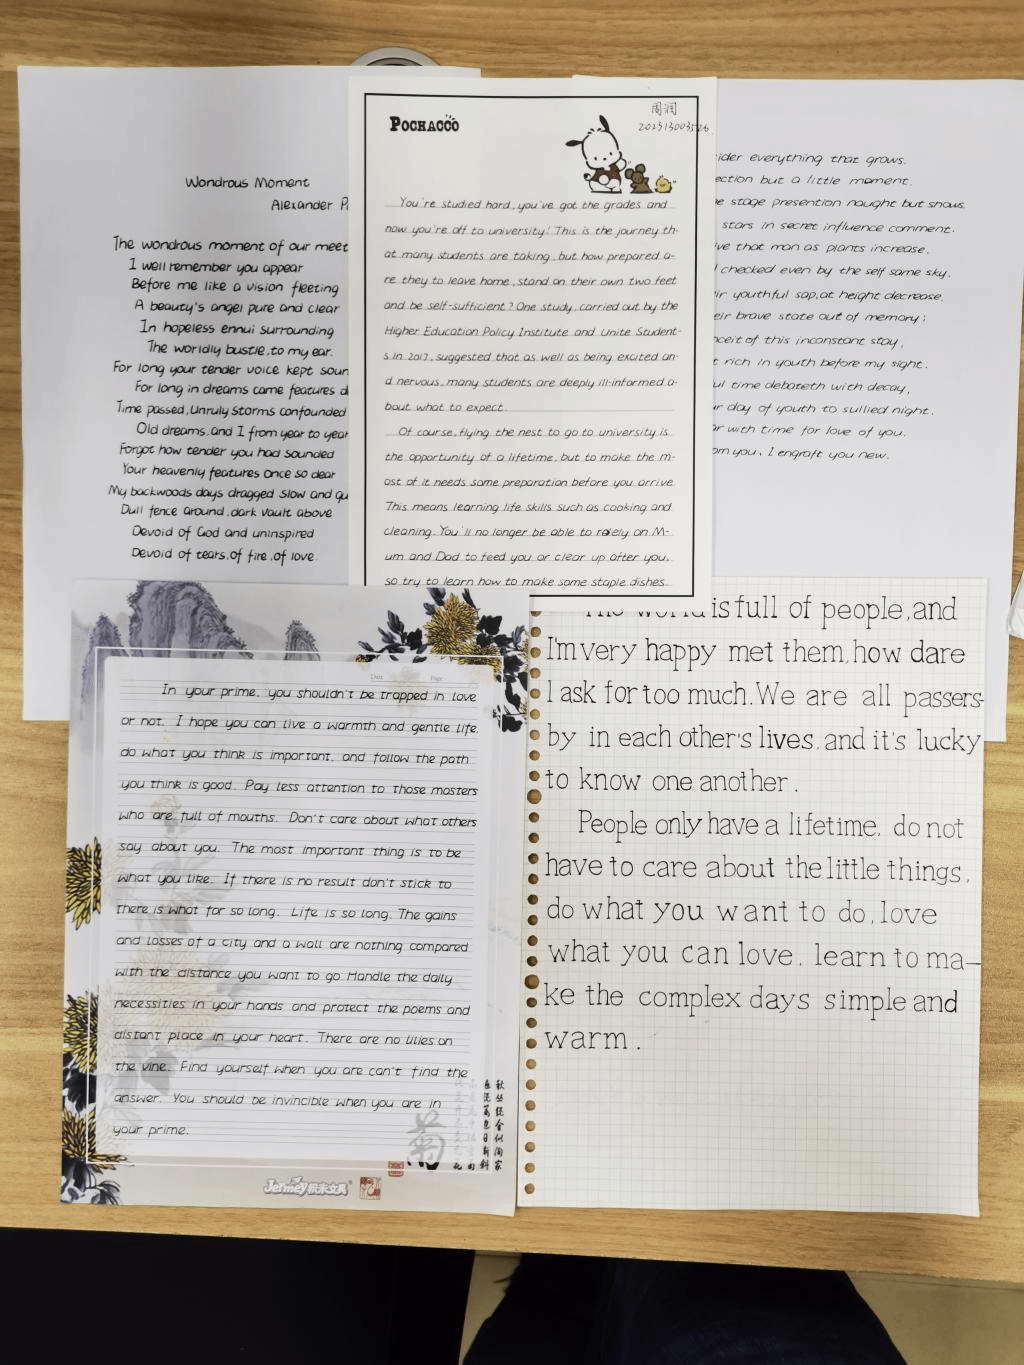 Wondrous Moment
Alexander
The wondrous moment of our meet
I well remember you appear
Before me like a vision fleeting
A beauty's angel pure and clear
In hopeless ennui surrounding
The worldly bustle,to my ear.
For long your tender voice kept soun
For long in dreams came features d
Time passed,Unruly storms confounded
Old dreams,and I from year to year
Forgot how tender you had sounded
Your heavenly features once so dear
My backwoods days dragged slow and qu
Dull fence around,dark vault above
Devoid of God and uninspired
Devoid of tears,of fire,of love
POCHACCO
周润
You're studied hard,you've got the grades and
now you're off to university! This is the journey th-
at many students are taking,but how prepared a-
re they to leave home,stand on their own two feet
and be self-sufficient? One study,carried out by the
Higher Education Policy Institute and Unite Student-
s in 2017,suggested that as well as being excited an-
d nervous,many students are deeply ill-informed a-
bout what to expect.
Of course,flying the nest to go to university is
the opportunity of a lifetime,but to make the m-
ost of it needs some preparation before you arrive.
This means learning life skills such as cooking and
cleaning.You'll no longer be able to rely on M-
um and Dad to feed you or clear up after you,
so try to learn how to make some staple dishes.
ider everything that grows.
ection but a little moment.
e stage presention nought but shows
stars in secret influence comment.
ve that man as plants increase,
checked even by the self same sky.
ir youthful sap,at height decrease,
eir brave state out of memory;
nceit of this inconstant stay,
t rich in youth before my sight.
ul time debateth with decay,
ur day of youth to sullied night.
ar with time for love of you.
om you, I engraft you new.
Date Page
In your prime, you shouldn't be trapped in love
or not. I hope you can live a warmth and gentle life,
do what you think is important, and follow the path
you think is good. Pay less attention to those masters
who are full of mouths. Don't care about what others
say about you. The most important thing is to be
what you like. If there is no result don't stick to
there is what for so long. Life is so long. The gains
and losses of a city and a wall are nothing compared
with the distance you want to go.Handle the daily
necessities in your hands and protect the poems and
distant place in your heart. There are no lilies on
the vine. Find yourself when you are can't find the
answer. You should be invincible when you are in
your prime.
菊
Jermey积米文具
The world is full of people,and
I'm very happy met them,how dare
I ask for too much.We are all passers-
by in each other's lives,and it's lucky
to know one another.
People only have a lifetime, do not
have to care about the little things,
do what you want to do,love
what you can love, learn to ma-
ke the complex days simple and
warm.